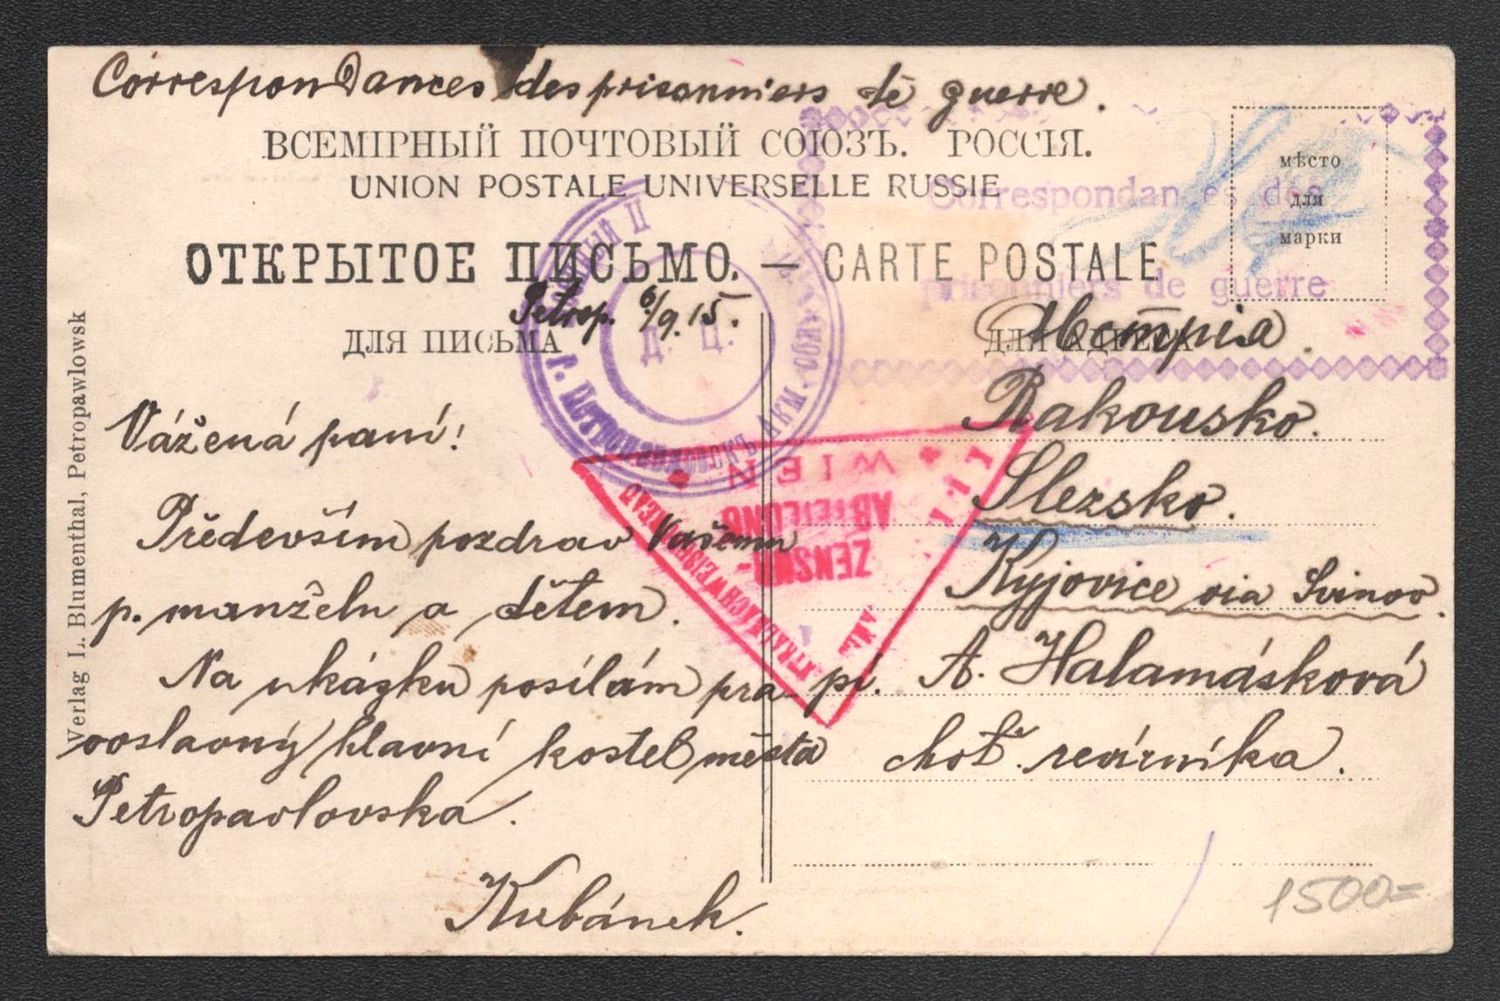 Correspondances des prisonniers de guerre.
ВСЕМІРНЫЙ ПОЧТОВЫЙ СОЮЗЪ. РОССІЯ.
UNION POSTALE UNIVERSELLE RUSSIE
ОТКРЫТОЕ ПИСЬМО. — CARTE POSTALE
мѣсто
для
марки
Correspondances des
prisonniers de guerre
ДЛЯ ПИСЬМА
ДЛЯ АДРЕСА
Petrop. 6/9. 15.
Vážená paní!
Především pozdrav Vašemu
p. manželu a dětem.
Na ukázku posílám pra
voslavný hlavní kostel města
Petropavlovska.
Kubánek.
Австрія.
Rakousko.
Slezsko.
Kyjovice via Svinov.
pí. A. Halamásková
choť revírníka.
Д. Ц.
Г. Петропавловскъ Акм.
WIEN
ZENSUR-
ABTEILUNG
111
Verlag L. Blumenthal, Petropawlowsk
1500=